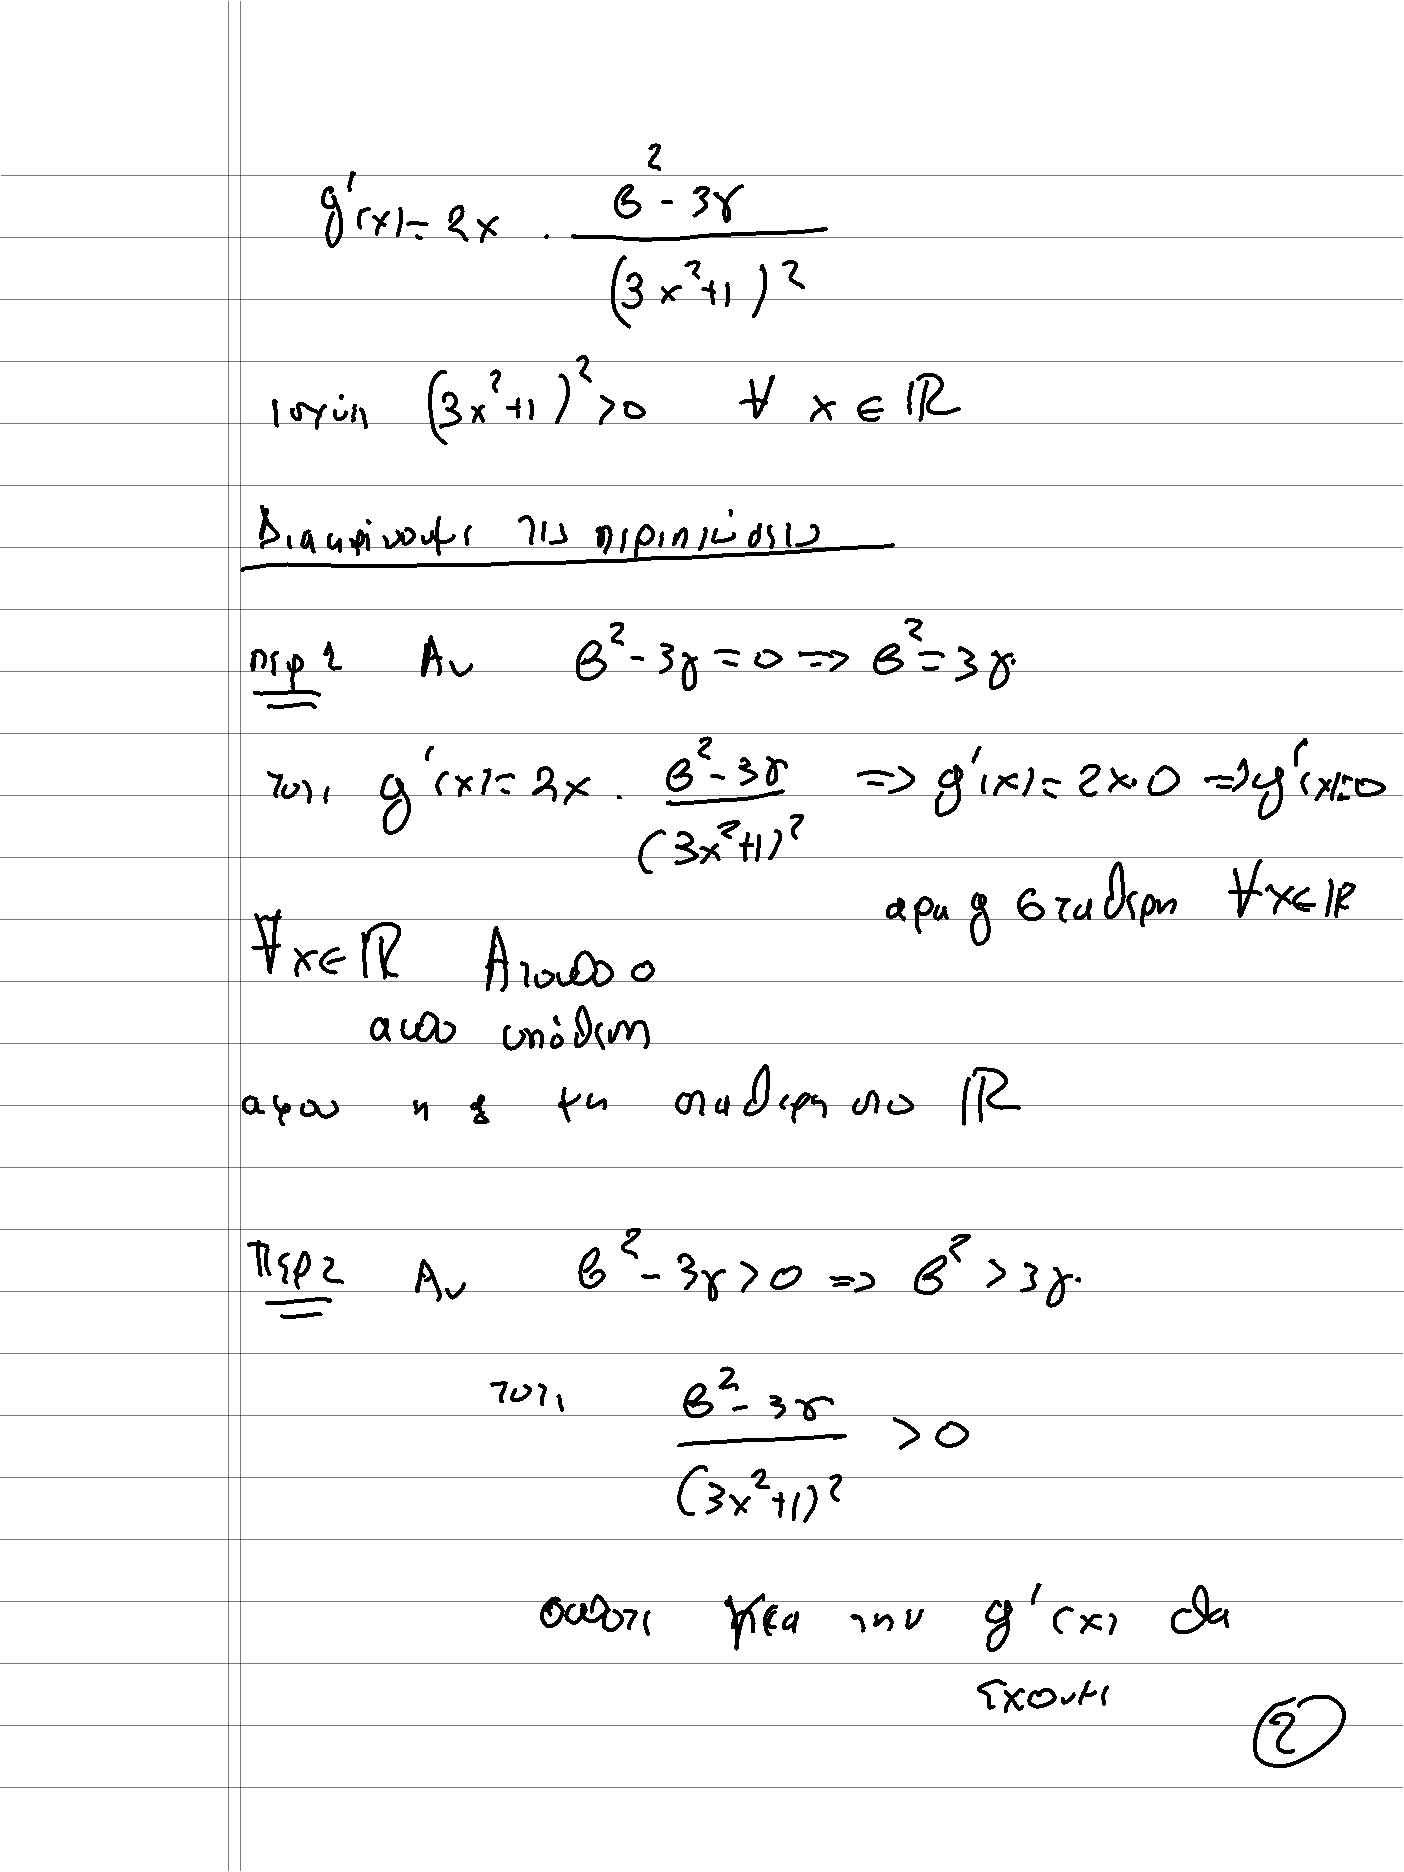 g'(x) = 2x · (β² - 3γ) / (3x²+1)²
ισχύει (3x²+1)² > 0 ∀ x ∈ ℝ
Διακρίνουμε τις περιπτώσεις
περ 1 Αν β² - 3γ = 0 => β² = 3γ.
τοτε g'(x) = 2x · (β² - 3γ) / (3x²+1)² => g'(x) = 2x·0 => g'(x)=0
αρα g σταθερη ∀x∈ℝ
∀x∈ℝ Ατοπο
απο υπόθεση
αφου η g μη σταθερη στο ℝ
Περ 2 Αν β² - 3γ > 0 => β² > 3γ.
τοτε (β² - 3γ) / (3x²+1)² > 0
οποτε για την g'(x) θα
έχουμε
2